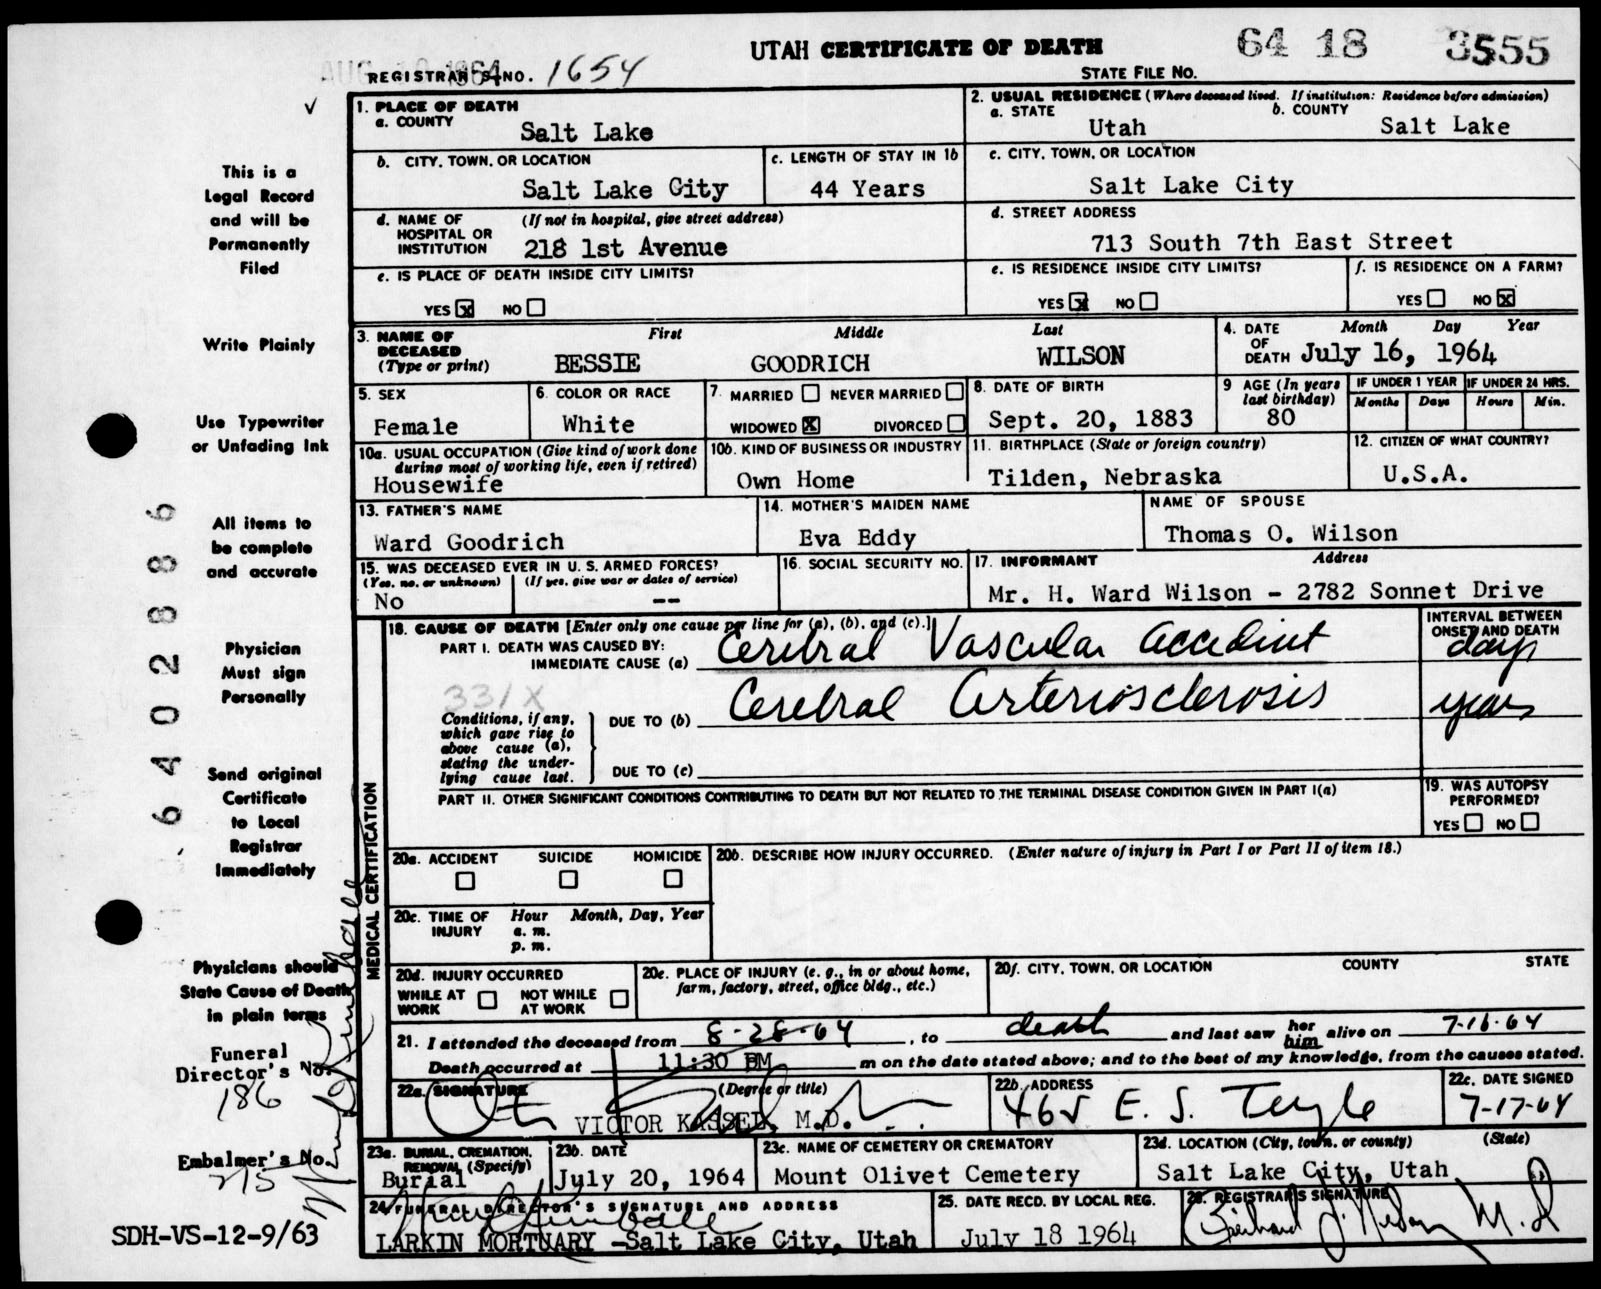 UTAH CERTIFICATE OF DEATH
64 18 3555
AUG 10 1964
REGISTRAR'S NO. 1654
STATE FILE No.
✓
This is a
Legal Record
and will be
Permanently
Filed
Write Plainly
Use Typewriter
or Unfading Ink
All items to
be complete
and accurate
Physician
Must sign
Personally
Send original
Certificate
to Local
Registrar
Immediately
Physicians should
State Cause of Death
in plain terms
Funeral
Director's No.
186
Embalmer's No.
275
SDH-VS-12-9/63
6402886
1. PLACE OF DEATH
a. COUNTY
Salt Lake
2. USUAL RESIDENCE (Where deceased lived. If institution: Residence before admission)
a. STATE b. COUNTY
Utah Salt Lake
b. CITY, TOWN, OR LOCATION
Salt Lake City
c. LENGTH OF STAY IN 1b
44 Years
c. CITY, TOWN, OR LOCATION
Salt Lake City
d. NAME OF HOSPITAL OR INSTITUTION (If not in hospital, give street address)
218 1st Avenue
d. STREET ADDRESS
713 South 7th East Street
e. IS PLACE OF DEATH INSIDE CITY LIMITS?
YES ☒ NO ☐
e. IS RESIDENCE INSIDE CITY LIMITS?
YES ☒ NO ☐
f. IS RESIDENCE ON A FARM?
YES ☐ NO ☒
3. NAME OF DECEASED (Type or print) First Middle Last
BESSIE GOODRICH WILSON
4. DATE OF DEATH Month Day Year
July 16, 1964
5. SEX
Female
6. COLOR OR RACE
White
7. MARRIED ☐ NEVER MARRIED ☐
WIDOWED ☒ DIVORCED ☐
8. DATE OF BIRTH
Sept. 20, 1883
9 AGE (In years last birthday)
80
IF UNDER 1 YEAR IF UNDER 24 HRS.
Months Days Hours Min.
10a. USUAL OCCUPATION (Give kind of work done during most of working life, even if retired)
Housewife
10b. KIND OF BUSINESS OR INDUSTRY
Own Home
11. BIRTHPLACE (State or foreign country)
Tilden, Nebraska
12. CITIZEN OF WHAT COUNTRY?
U.S.A.
13. FATHER'S NAME
Ward Goodrich
14. MOTHER'S MAIDEN NAME
Eva Eddy
NAME OF SPOUSE
Thomas O. Wilson
15. WAS DECEASED EVER IN U. S. ARMED FORCES?
(Yes, no, or unknown) (If yes, give war or dates of service)
No --
16. SOCIAL SECURITY NO.
17. INFORMANT Address
Mr. H. Ward Wilson - 2782 Sonnet Drive
MEDICAL CERTIFICATION
18. CAUSE OF DEATH [Enter only one cause per line for (a), (b), and (c).]
INTERVAL BETWEEN ONSET AND DEATH
PART I. DEATH WAS CAUSED BY:
IMMEDIATE CAUSE (a) Cerebral Vascular accident days
331X
Conditions, if any, which gave rise to above cause (a), stating the underlying cause last.
DUE TO (b) Cerebral Arteriosclerosis years
DUE TO (c)
PART II. OTHER SIGNIFICANT CONDITIONS CONTRIBUTING TO DEATH BUT NOT RELATED TO THE TERMINAL DISEASE CONDITION GIVEN IN PART I(a)
19. WAS AUTOPSY PERFORMED?
YES ☐ NO ☐
20a. ACCIDENT SUICIDE HOMICIDE
☐ ☐ ☐
20b. DESCRIBE HOW INJURY OCCURRED. (Enter nature of injury in Part I or Part II of item 18.)
20c. TIME OF INJURY Hour Month, Day, Year
a. m.
p. m.
20d. INJURY OCCURRED
WHILE AT WORK ☐ NOT WHILE AT WORK ☐
20e. PLACE OF INJURY (e. g., in or about home, farm, factory, street, office bldg., etc.)
20f. CITY, TOWN, OR LOCATION COUNTY STATE
21. I attended the deceased from 8-28-64, to death and last saw her him alive on 7-16-64
Death occurred at 11:30 PM m on the date stated above; and to the best of my knowledge, from the causes stated.
22a. SIGNATURE (Degree or title)
VICTOR KASSEL, M.D.
22b. ADDRESS
465 E. S. Temple
22c. DATE SIGNED
7-17-64
23a. BURIAL, CREMATION, REMOVAL (Specify)
Burial
23b. DATE
July 20, 1964
23c. NAME OF CEMETERY OR CREMATORY
Mount Olivet Cemetery
23d. LOCATION (City, town, or county) (State)
Salt Lake City, Utah
24. FUNERAL DIRECTOR'S SIGNATURE AND ADDRESS
LARKIN MORTUARY -Salt Lake City, Utah
25. DATE RECD. BY LOCAL REG.
July 18 1964
26. REGISTRAR'S SIGNATURE
M.D.